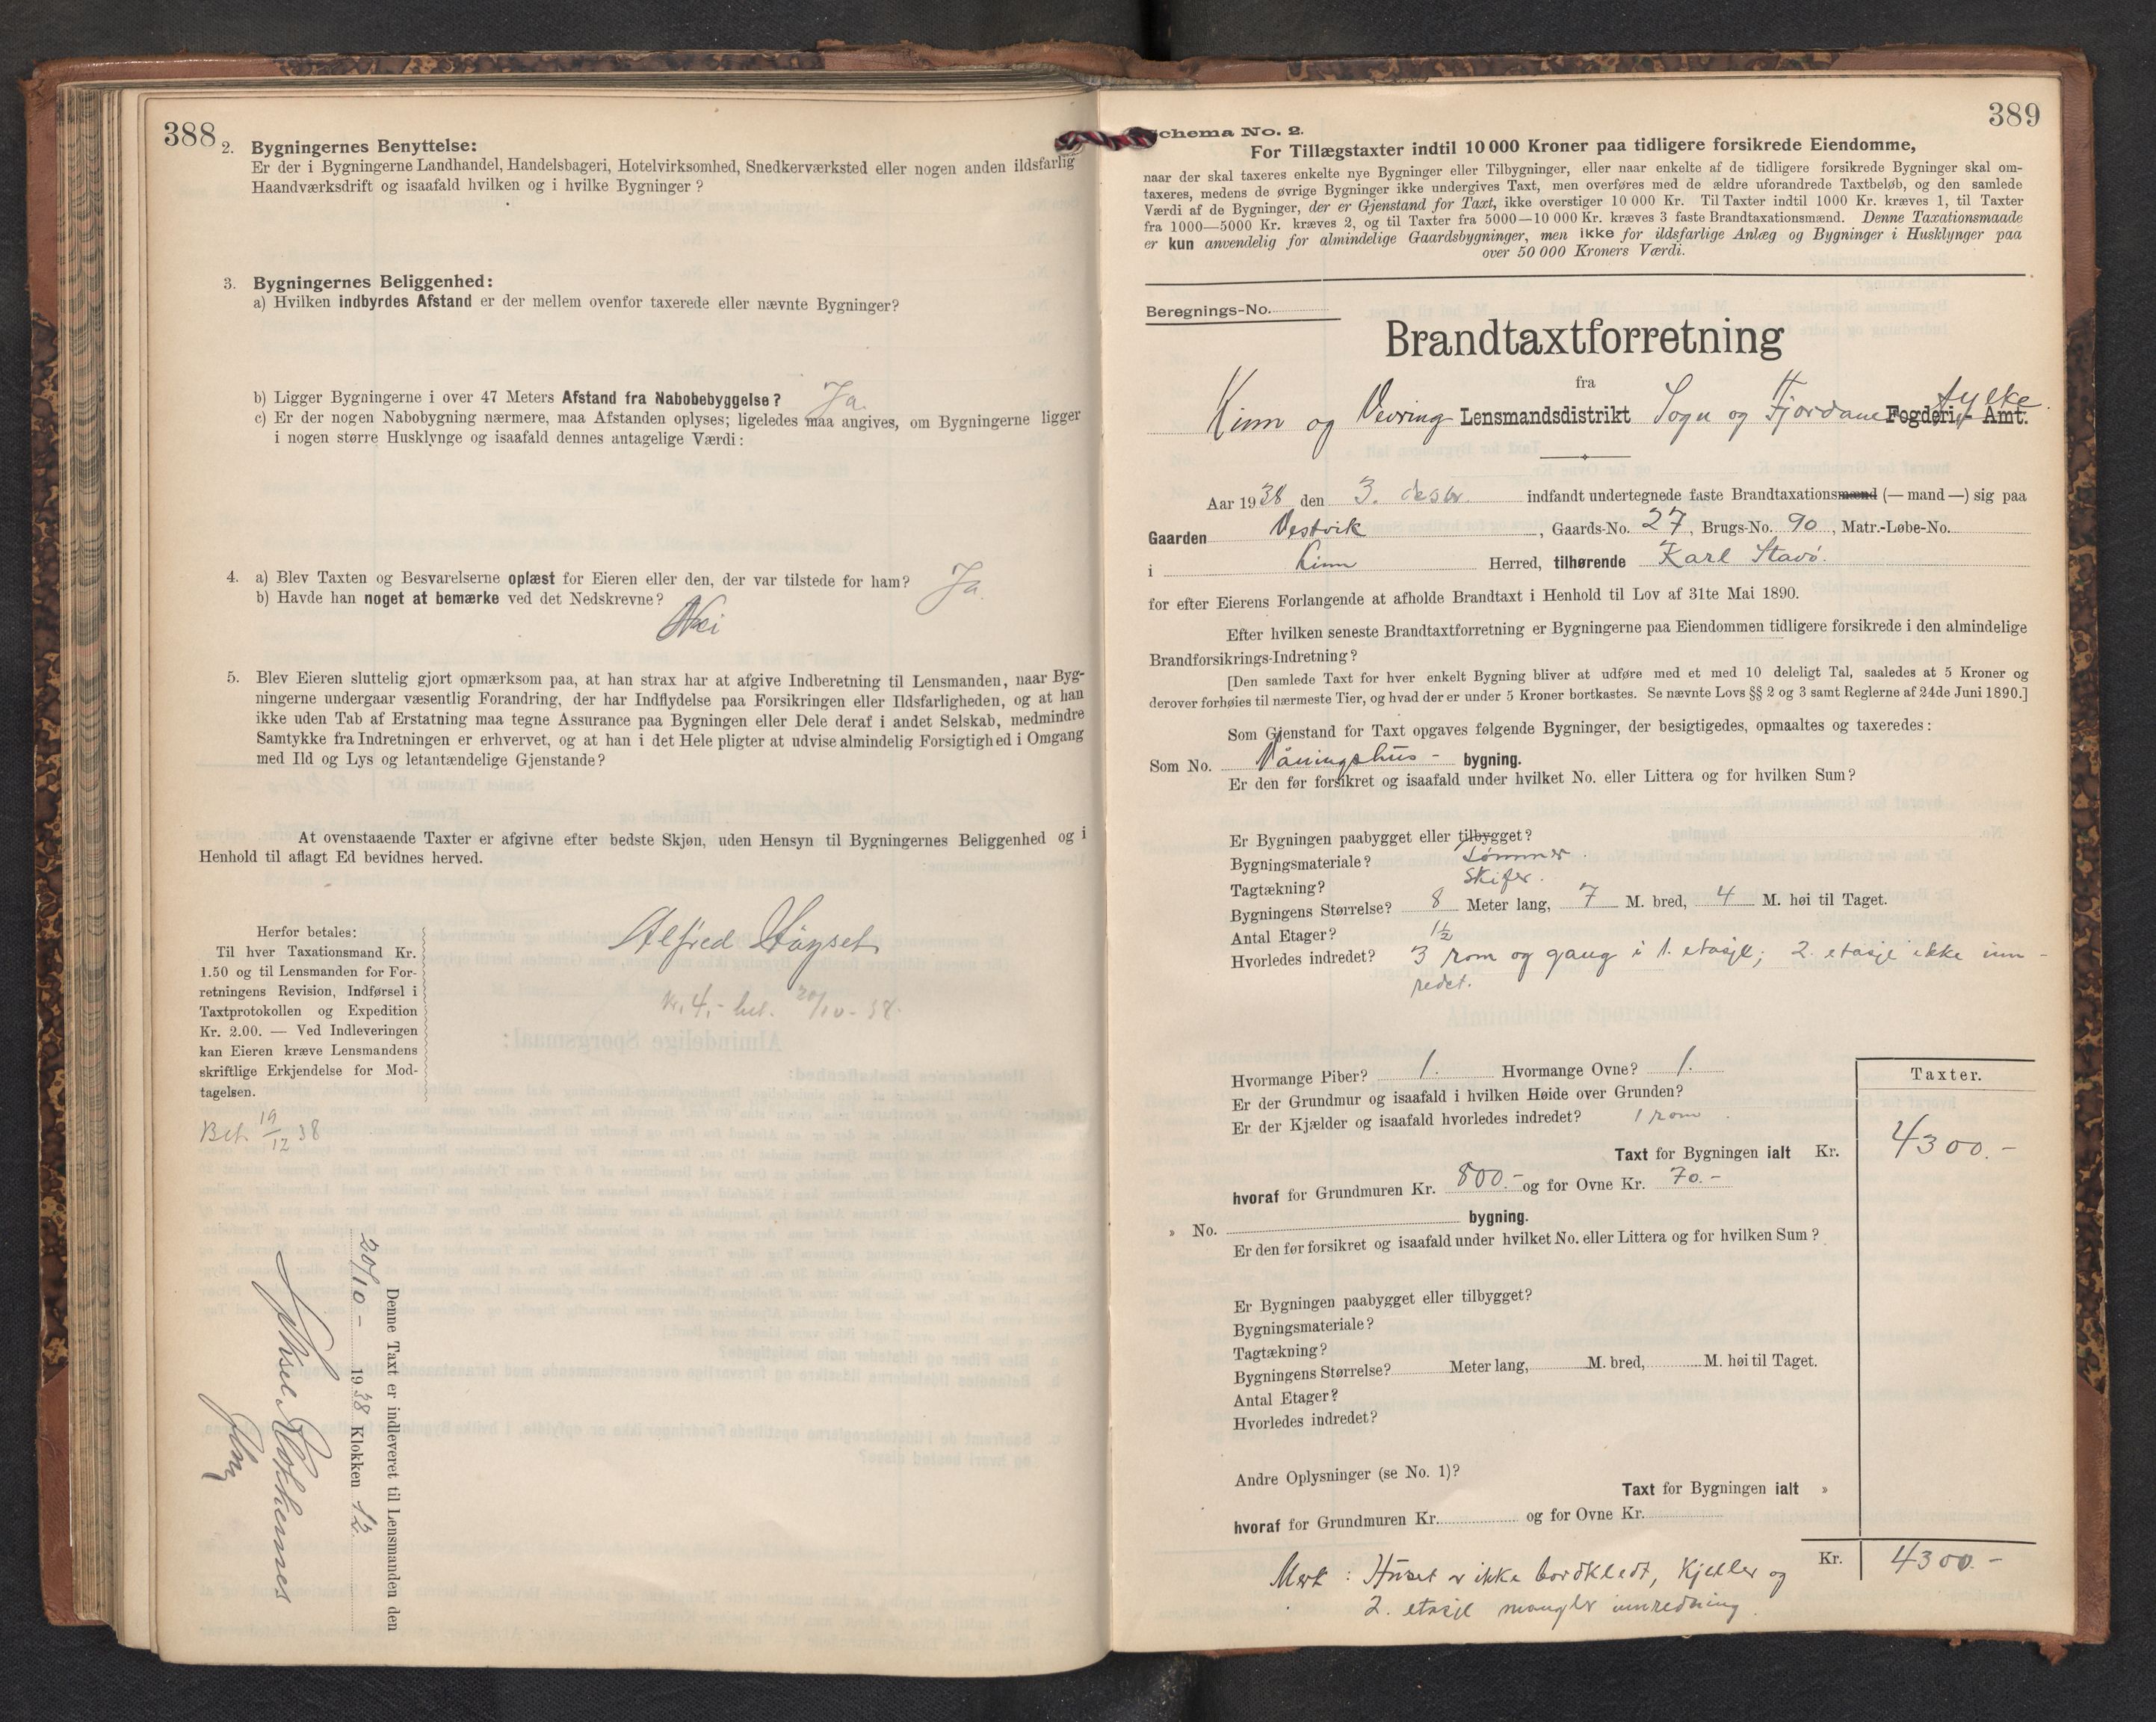 388
2. Bygningernes Benyttelse:
Er der i Bygningerne Landhandel, Handelsbageri, Hotelvirksomhed, Snedkerværksted eller nogen anden ildsfarlig
Haandværksdrift og isaafald hvilken og i hvilke Bygninger?
3. Bygningernes Beliggenhed:
a) Hvilken indbyrdes Afstand er der mellem ovenfor taxerede eller nævnte Bygninger?
b) Ligger Bygningerne i over 47 Meters Afstand fra Nabobebyggelse? Ja.
c) Er der nogen Nabobygning nærmere, maa Afstanden oplyses; ligeledes maa angives, om Bygningerne ligger
i nogen større Husklynge og isaafald dennes antagelige Værdi:
4. a) Blev Taxten og Besvarelserne oplæst for Eieren eller den, der var tilstede for ham? Ja.
b) Havde han noget at bemærke ved det Nedskrevne?
Nei
5. Blev Eieren sluttelig gjort opmærksom paa, at han strax har at afgive Indberetning til Lensmanden, naar Byg-
ningerne undergaar væsentlig Forandring, der har Indflydelse paa Forsikringen eller Ildsfarligheden, og at han
ikke uden Tab af Erstatning maa tegne Assurance paa Bygningen eller Dele deraf i andet Selskab, medmindre
Samtykke fra Indretningen er erhvervet, og at han i det Hele pligter at udvise almindelig Forsigtighed i Omgang
med Ild og Lys og letantændelige Gjenstande?
At ovenstaaende Taxter er afgivne efter bedste Skjøn, uden Hensyn til Bygningernes Beliggenhed og i
Henhold til aflagt Ed bevidnes herved.
Alfred Høyset
Kr. 4,- bet. 20/10-38.
Herfor betales:
Til hver Taxationsmand Kr.
1.50 og til Lensmanden for For-
retningens Revision, Indførsel i
Taxtprotokollen og Expedition
Kr. 2.00. — Ved Indleveringen
kan Eieren kræve Lensmandens
skriftlige Erkjendelse for Mod-
tagelsen.
Bet. 19/12 38
Denne Taxt er indleveret til Lensmanden den
20/10 - 1938 Klokken 12
389
Schema No. 2.
For Tillægstaxter indtil 10 000 Kroner paa tidligere forsikrede Eiendomme,
naar der skal taxeres enkelte nye Bygninger eller Tilbygninger, eller naar enkelte af de tidligere forsikrede Bygninger skal om-
taxeres, medens de øvrige Bygninger ikke undergives Taxt, men overføres med de ældre uforandrede Taxtbeløb, og den samlede
Værdi af de Bygninger, der er Gjenstand for Taxt, ikke overstiger 10 000 Kr. Til Taxter indtil 1000 Kr. kræves 1, til Taxter
fra 1000—5000 Kr. kræves 2, og til Taxter fra 5000—10 000 Kr. kræves 3 faste Brandtaxationsmænd. Denne Taxationsmaade
er kun anvendelig for almindelige Gaardsbygninger, men ikke for ildsfarlige Anlæg og Bygninger i Husklynger paa
over 50 000 Kroners Værdi.
Beregnings-No.
Brandtaxtforretning
fra
Kinn og Vevring Lensmandsdistrikt Sogn og Fjordane Fogderi, Amt. fylke.
Aar 1938 den 3. desbr. indfandt undertegnede faste Brandtaxationsmænd (— mand —) sig paa
Gaarden Vestvik, Gaards-No. 27, Brugs-No. 90, Matr.-Løbe-No.
i Kinn Herred, tilhørende Karl Stavø.
for efter Eierens Forlangende at afholde Brandtaxt i Henhold til Lov af 31te Mai 1890.
Efter hvilken seneste Brandtaxtforretning er Bygningerne paa Eiendommen tidligere forsikrede i den almindelige
Brandforsikrings-Indretning?
[Den samlede Taxt for hver enkelt Bygning bliver at udføre med et med 10 deleligt Tal, saaledes at 5 Kroner og
derover forhøies til nærmeste Tier, og hvad der er under 5 Kroner bortkastes. Se nævnte Lovs §§ 2 og 3 samt Reglerne af 24de Juni 1890.]
Som Gjenstand for Taxt opgaves følgende Bygninger, der besigtigedes, opmaaltes og taxeredes:
Som No. Våningshus - bygning.
Er den før forsikret og isaafald under hvilket No. eller Littera og for hvilken Sum?
Er Bygningen paabygget eller tilbygget?
Bygningsmateriale? Tømmer.
Tagtækning? Skifer.
Bygningens Størrelse? 8 Meter lang, 7 M. bred, 4 M. høi til Taget.
Antal Etager? 1½
Hvorledes indredet? 3 rom og gang i 1. etasje; 2. etasje ikke inn-
redet.
Hvormange Piber? 1. Hvormange Ovne? 1.
Er der Grundmur og isaafald i hvilken Høide over Grunden?
Er der Kjælder og isaafald hvorledes indredet? 1 rom.
Taxter.
Taxt for Bygningen ialt Kr. 4300.-
hvoraf for Grundmuren Kr. 800.- og for Ovne Kr. 70.-
» No. bygning.
Er den før forsikret og isaafald under hvilket No. eller Littera og for hvilken Sum?
Er Bygningen paabygget eller tilbygget?
Bygningsmateriale?
Tagtækning?
Bygningens Størrelse? Meter lang, M. bred, M. høi til Taget.
Antal Etager?
Hvorledes indredet?
Andre Oplysninger (se No. 1)?
Taxt for Bygningen ialt »
hvoraf for Grundmuren Kr. og for Ovne Kr.
Kr. 4300.-
Merk: Huset er ikke bordkledt, Kjeller og
2. etasje mangler innredning.